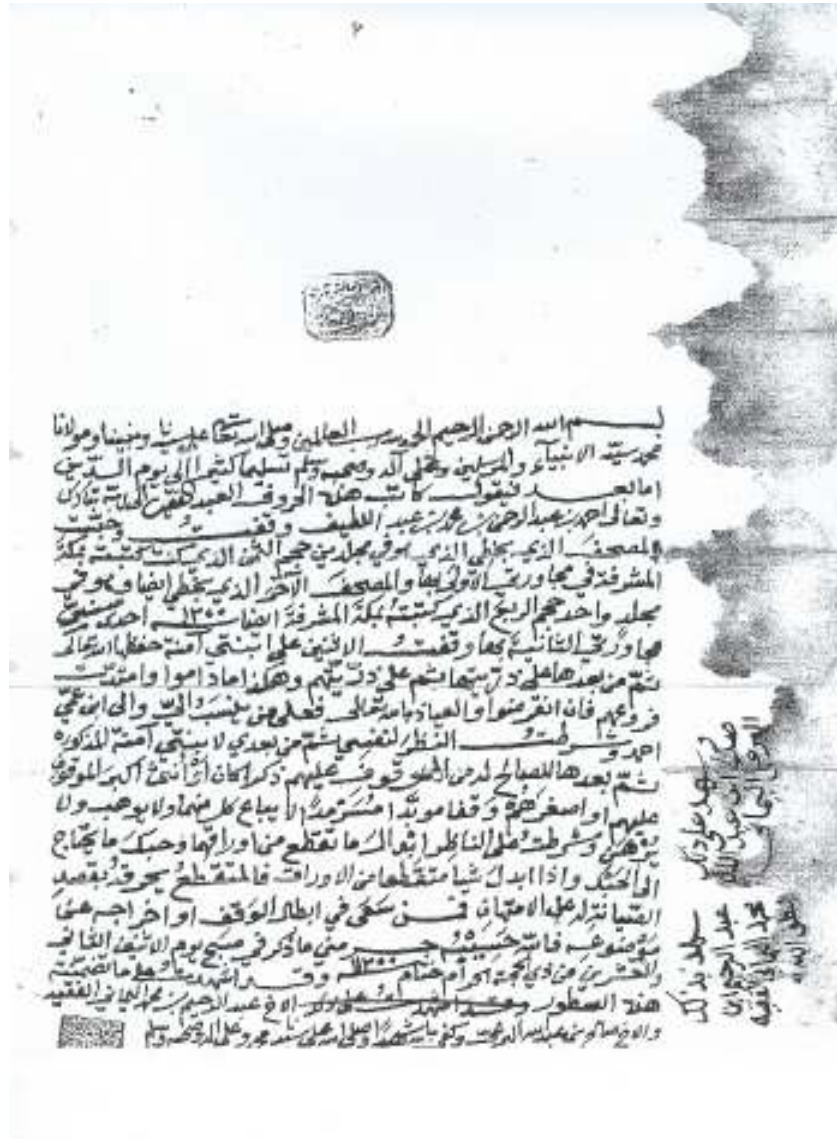 بسم الله الرحمن الرحيم الحمد لله رب العالمين وصلى الله تعالى على سيدنا ونبينا ومولانا
محمد سيد الانبياء والمرسلين وعلى آله وصحبه وسلم تسليما كثيرا الى يوم الدين
اما بعد فيقول كاتب هذه الحروف العبد الفقير الى الله تبارك
وتعالى احمد بن عبد الرحمن بن محمد بن عبد اللطيف وقفت وحبست
المصحف الذي بخطي الذي هو في مجلدين حجم الثمن الذي كنت كتبته بمكة
المشرفة في مجاورتي الاولى بها والمصحف الآخر الذي بخطي ايضا وهو في
مجلد واحد حجم الربع الذي كتبته بمكة المشرفة ايضا سنة ١٣٠٠ احدى سنيي
مجاورتي الثانية بها وقفت الاثنين على ابنتي آمنة حفظها الله تعالى
ثم من بعدها على ذريتها ثم على ذريتهم وهكذا ما داموا وامتدت
فروعهم فان انقرضوا والعياذ بالله تعالى فعلى من ينسب الي والى ابن عمي
احمد وشرطت النظر لنفسي ثم من بعدي لابنتي آمنة المذكورة
ثم بعدها للصالح له من الموقوف عليهم ذكرا كان او انثى اكبر الموقوف
عليهم او اصغرهم وقفا مؤبدا مسرمدا لا يباع كل منهما ولا يوهب ولا
يرهن وشرطت على الناظر ابدال ما تقطع من اوراقهما وحبك ما يحتاج
الى الحبك واذا ابدل شيا متقطعا من الاوراق فالمتقطع يحرقه بقصد
الصيانة له عن الامتهان فمن سعى في ابطال الوقف او اخراجه عن
موضوعه فالله حسيبه جر مني ما ذكر في صبح يوم الاثنين الثاني
والعشرين من ذي الحجة الحرام ختام سنة ١٣٠٠ وقد اشهدت على ما تضمنته
هذه السطور وقد اشهدت على ذلك الاخ عبد الرحيم بن محمد الجاني الفقيه
والاخ صالح بن عبد الله وكفى بالله شهيدا وصلى الله على سيدنا محمد وعلى آله وصحبه وسلم
شهد على ذلك
صالح بن عبد الله
شهد بذلك
عبد الرحيم بن
محمد الجاني الفقيه